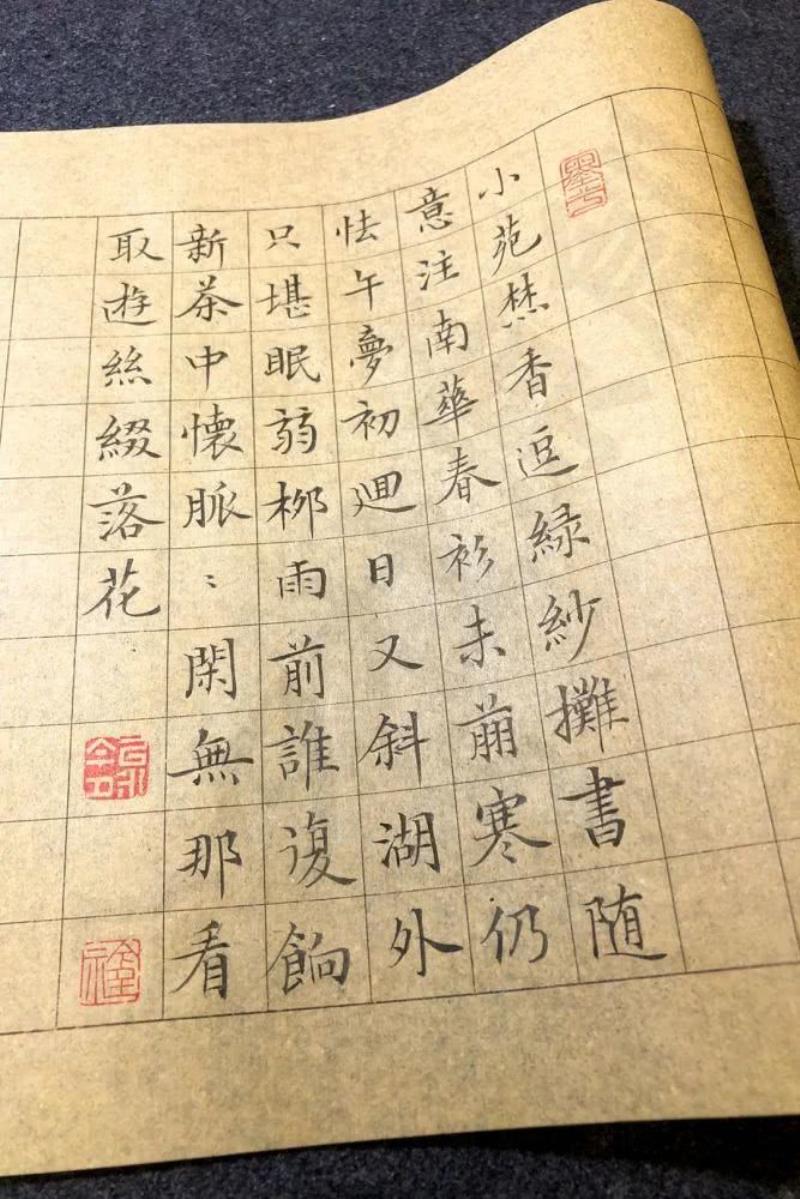 小苑焚香逗緑紗攤書随
意注南華春衫未萠寒仍
怯午夢初迴日又斜湖外
只堪眠弱栁雨前誰復餉
新茶中懷脈〻閑無那看
取遊絲綴落花